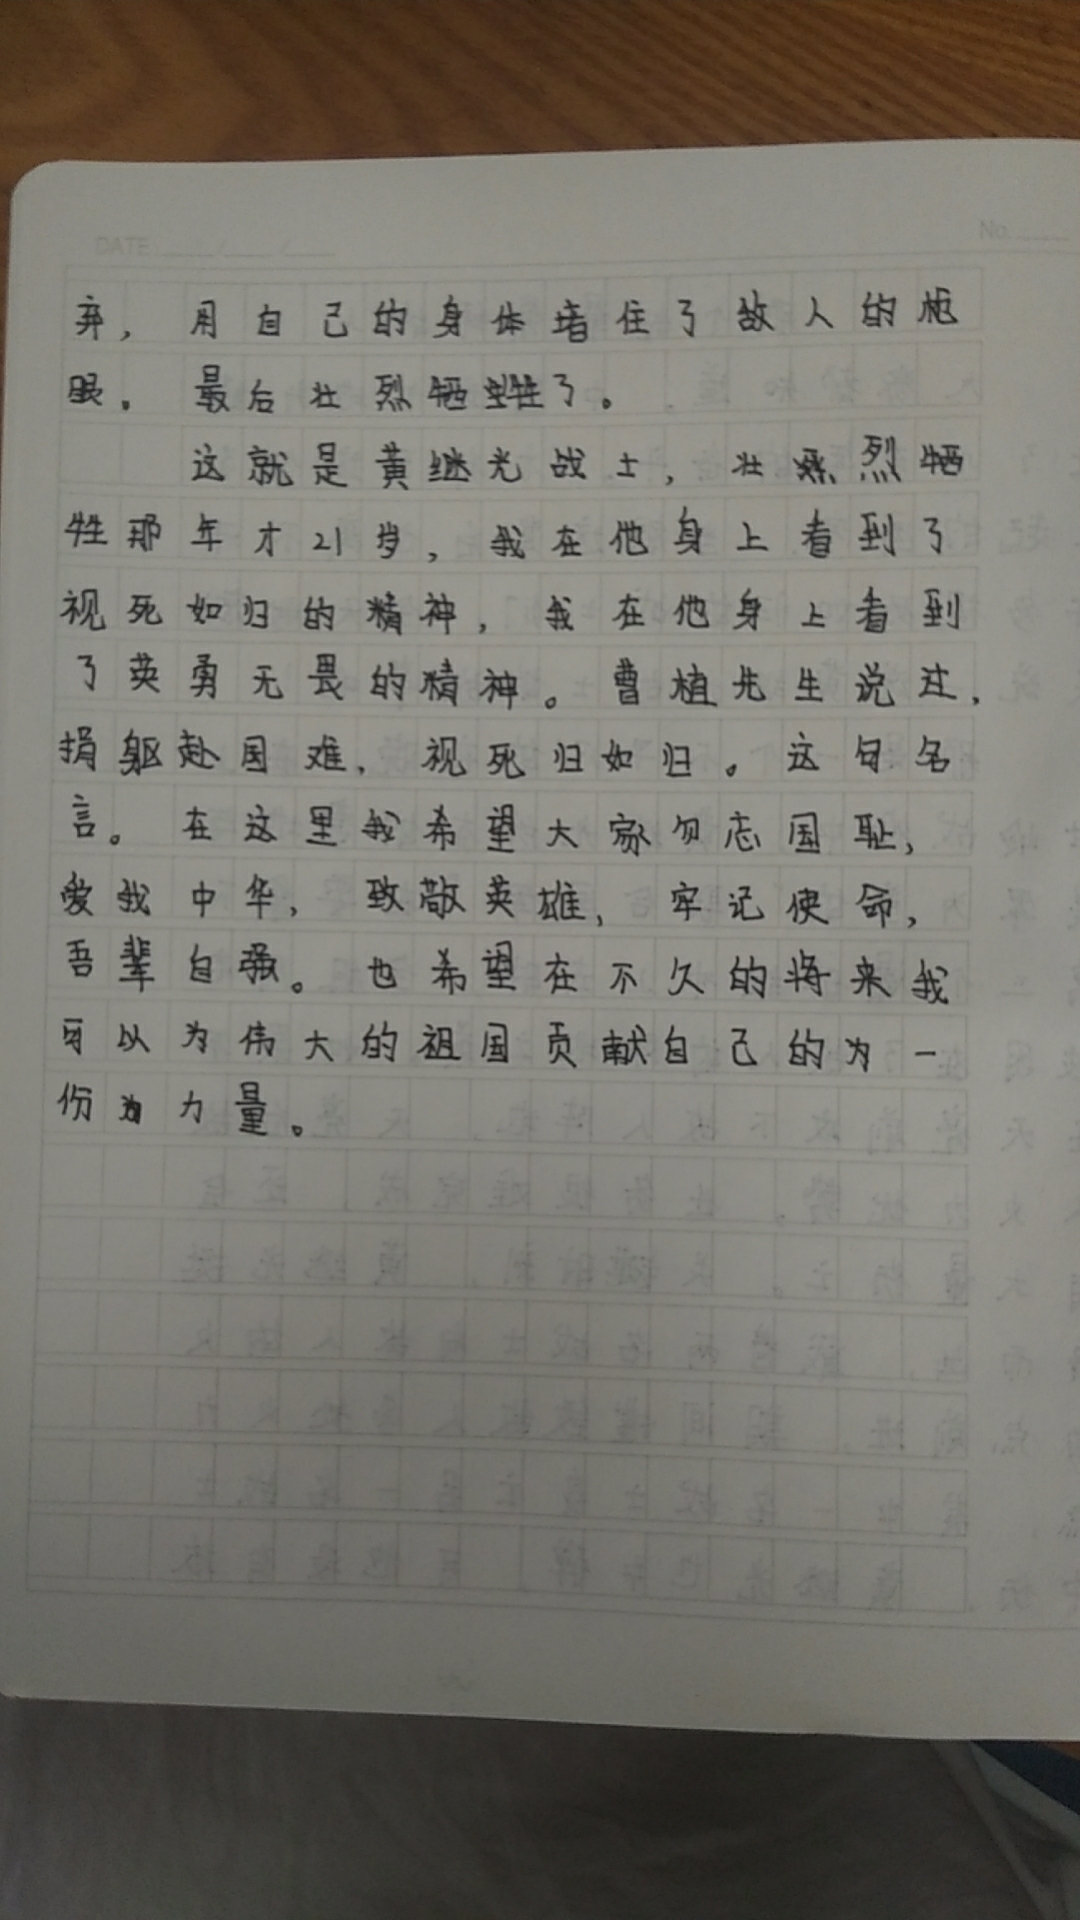 DATE: ____/____/____
No. ____
弃，用自己的身体堵住了敌人的枪
眼。最后壮烈牺牲了。
这就是黄继光战士，壮烈牺
牲那年才21岁，我在他身上看到了
视死如归的精神，我在他身上看到
了英勇无畏的精神。曹植先生说过，
捐躯赴国难，视死归如归。这句名
言。在这里我希望大家勿忘国耻，
爱我中华，致敬英雄，牢记使命，
吾辈自强。也希望在不久的将来我
可以为伟大的祖国贡献自己的为一
份力量。